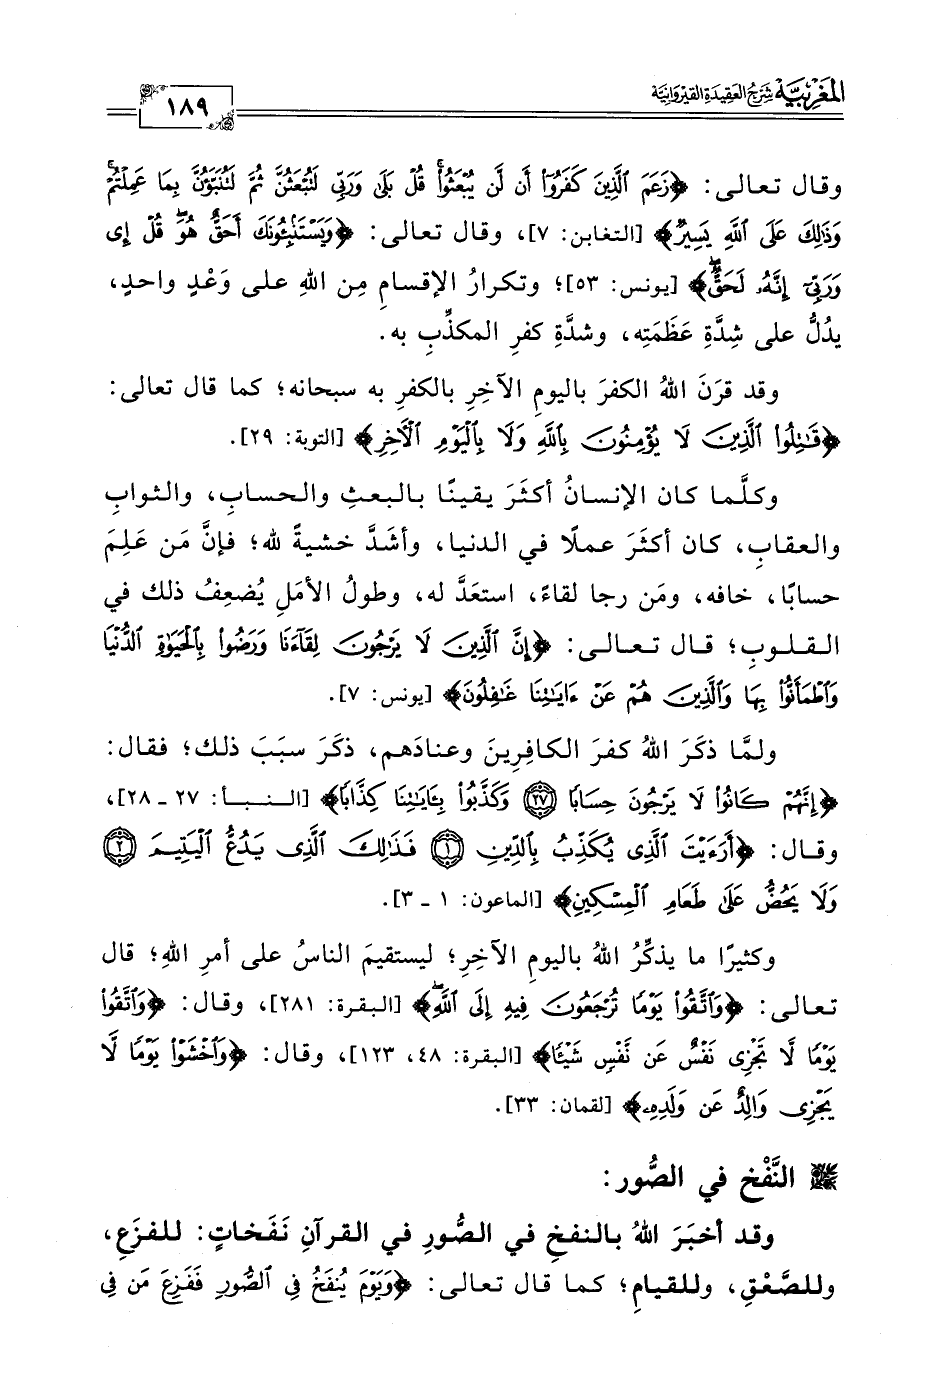 المغربية شرح العقيدة القيروانية
١٨٩
وقال تعالى: ﴿زَعَمَ ٱلَّذِينَ كَفَرُوٓا۟ أَن لَّن يُبْعَثُوا۟ ۚ قُلْ بَلَىٰ وَرَبِّى لَتُبْعَثُنَّ ثُمَّ لَتُنَبَّؤُنَّ بِمَا عَمِلْتُمْ ۚ
وَذَٰلِكَ عَلَى ٱللَّهِ يَسِيرٌ﴾ [التغابن: ٧]، وقال تعالى: ﴿وَيَسْتَنۢبِـُٔونَكَ أَحَقٌّ هُوَ ۖ قُلْ إِى
وَرَبِّىٓ إِنَّهُۥ لَحَقٌّ ۖ﴾ [يونس: ٥٣]؛ وتكرارُ الإقسامِ مِن اللهِ على وَعْدٍ واحدٍ،
يدُلُّ على شِدَّةِ عَظَمَتِه، وشدَّةِ كفرِ المكذِّبِ به.
وقد قرَنَ اللهُ الكفرَ باليومِ الآخِرِ بالكفرِ به سبحانه؛ كما قال تعالى:
﴿قَٰتِلُوا۟ ٱلَّذِينَ لَا يُؤْمِنُونَ بِٱللَّهِ وَلَا بِٱلْيَوْمِ ٱلْـَٔاخِرِ﴾ [التوبة: ٢٩].
وكلَّما كان الإنسانُ أكثَرَ يقينًا بالبعثِ والحسابِ، والثوابِ
والعقابِ، كان أكثَرَ عملًا في الدنيا، وأشَدَّ خشيةً لله؛ فإنَّ مَن عَلِمَ
حسابًا، خافه، ومَن رجا لقاءً، استعَدَّ له، وطولُ الأمَلِ يُضعِفُ ذلك في
القلوبِ؛ قال تعالى: ﴿إِنَّ ٱلَّذِينَ لَا يَرْجُونَ لِقَآءَنَا وَرَضُوا۟ بِٱلْحَيَوٰةِ ٱلدُّنْيَا
وَٱطْمَأَنُّوا۟ بِهَا وَٱلَّذِينَ هُمْ عَنْ ءَايَٰتِنَا غَٰفِلُونَ﴾ [يونس: ٧].
ولمَّا ذكَرَ اللهُ كفرَ الكافِرِينَ وعنادَهم، ذكَرَ سبَبَ ذلك؛ فقال:
﴿إِنَّهُمْ كَانُوا۟ لَا يَرْجُونَ حِسَابًا ٢٧ وَكَذَّبُوا۟ بِـَٔايَٰتِنَا كِذَّابًا﴾ [النبأ: ٢٧ ـ ٢٨]،
وقال: ﴿أَرَءَيْتَ ٱلَّذِى يُكَذِّبُ بِٱلدِّينِ ١ فَذَٰلِكَ ٱلَّذِى يَدُعُّ ٱلْيَتِيمَ ٢
وَلَا يَحُضُّ عَلَىٰ طَعَامِ ٱلْمِسْكِينِ﴾ [الماعون: ١ ـ ٣].
وكثيرًا ما يذكِّرُ اللهُ باليومِ الآخِرِ؛ ليستقيمَ الناسُ على أمرِ اللهِ؛ قال
تعالى: ﴿وَٱتَّقُوا۟ يَوْمًا تُرْجَعُونَ فِيهِ إِلَى ٱللَّهِ ۖ﴾ [البقرة: ٢٨١]، وقال: ﴿وَٱتَّقُوا۟
يَوْمًا لَّا تَجْزِى نَفْسٌ عَن نَّفْسٍ شَيْـًٔا﴾ [البقرة: ٤٨، ١٢٣]، وقال: ﴿وَٱخْشَوْا۟ يَوْمًا لَّا
يَجْزِى وَالِدٌ عَن وَلَدِهِۦ﴾ [لقمان: ٣٣].
النَّفْخ في الصُّور:
وقد أخبَرَ اللهُ بالنفخِ في الصُّورِ في القرآنِ نَفَخاتٍ: للفزَعِ،
وللصَّعْقِ، وللقيامِ؛ كما قال تعالى: ﴿وَيَوْمَ يُنفَخُ فِى ٱلصُّورِ فَفَزِعَ مَن فِى